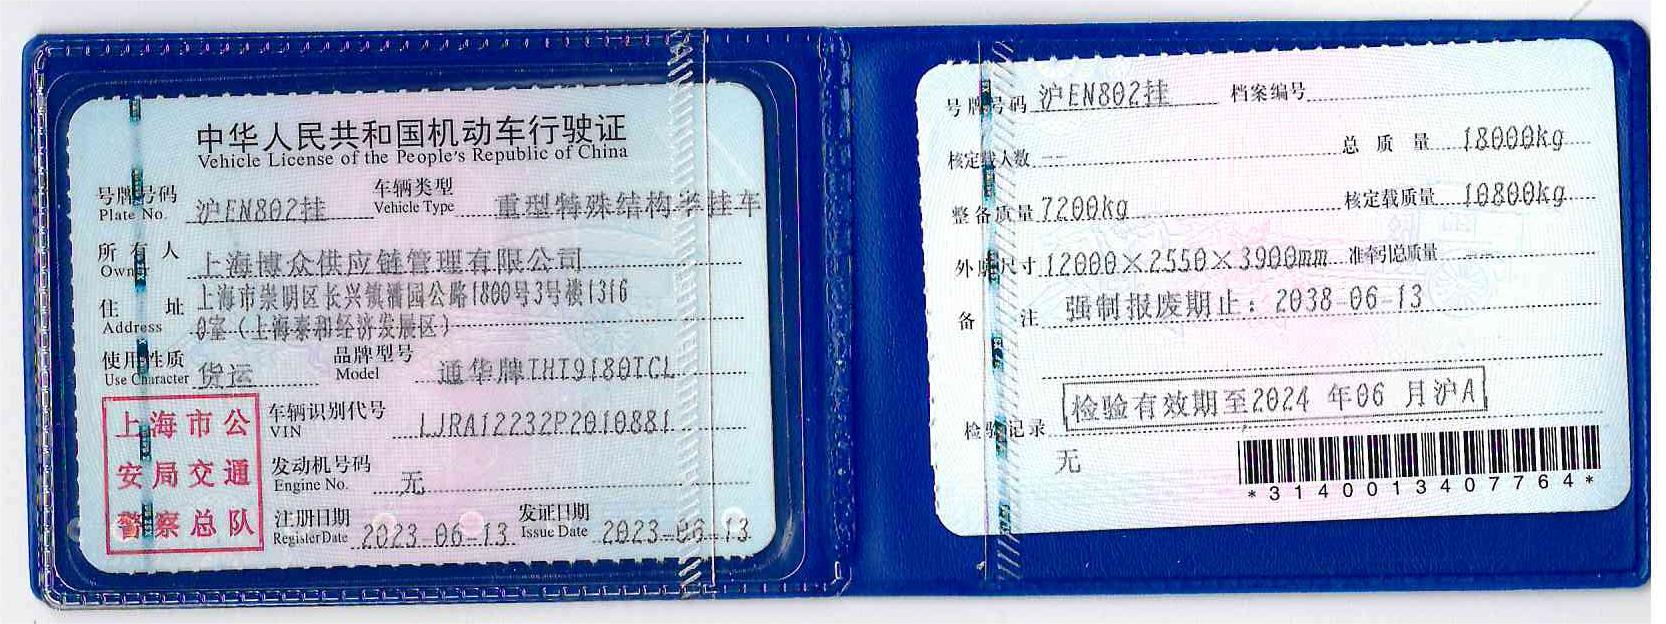 中华人民共和国机动车行驶证
Vehicle License of the People's Republic of China
号牌号码 Plate No. 沪EN802挂 车辆类型 Vehicle Type 重型特殊结构半挂车
所有人 Owner 上海博众供应链管理有限公司
住址 Address 上海市崇明区长兴镇潘园公路1800号3号楼1316
0室(上海泰和经济发展区)
使用性质 Use Character 货运 品牌型号 Model 通华牌THT9180TCL
上海市公
安局交通
警察总队
车辆识别代号 VIN LJRA12232P2010881
发动机号码 Engine No. 无
注册日期 Register Date 2023-06-13 发证日期 Issue Date 2023-06-13
号牌号码 沪EN802挂 档案编号
核定载人数 -- 总质量 18000kg
整备质量 7200kg 核定载质量 10800kg
外廓尺寸 12000×2550×3900mm 准牵引总质量 --
备注 强制报废期止:2038-06-13
检验有效期至2024 年06 月沪A
检验记录
无
*3140013407764*